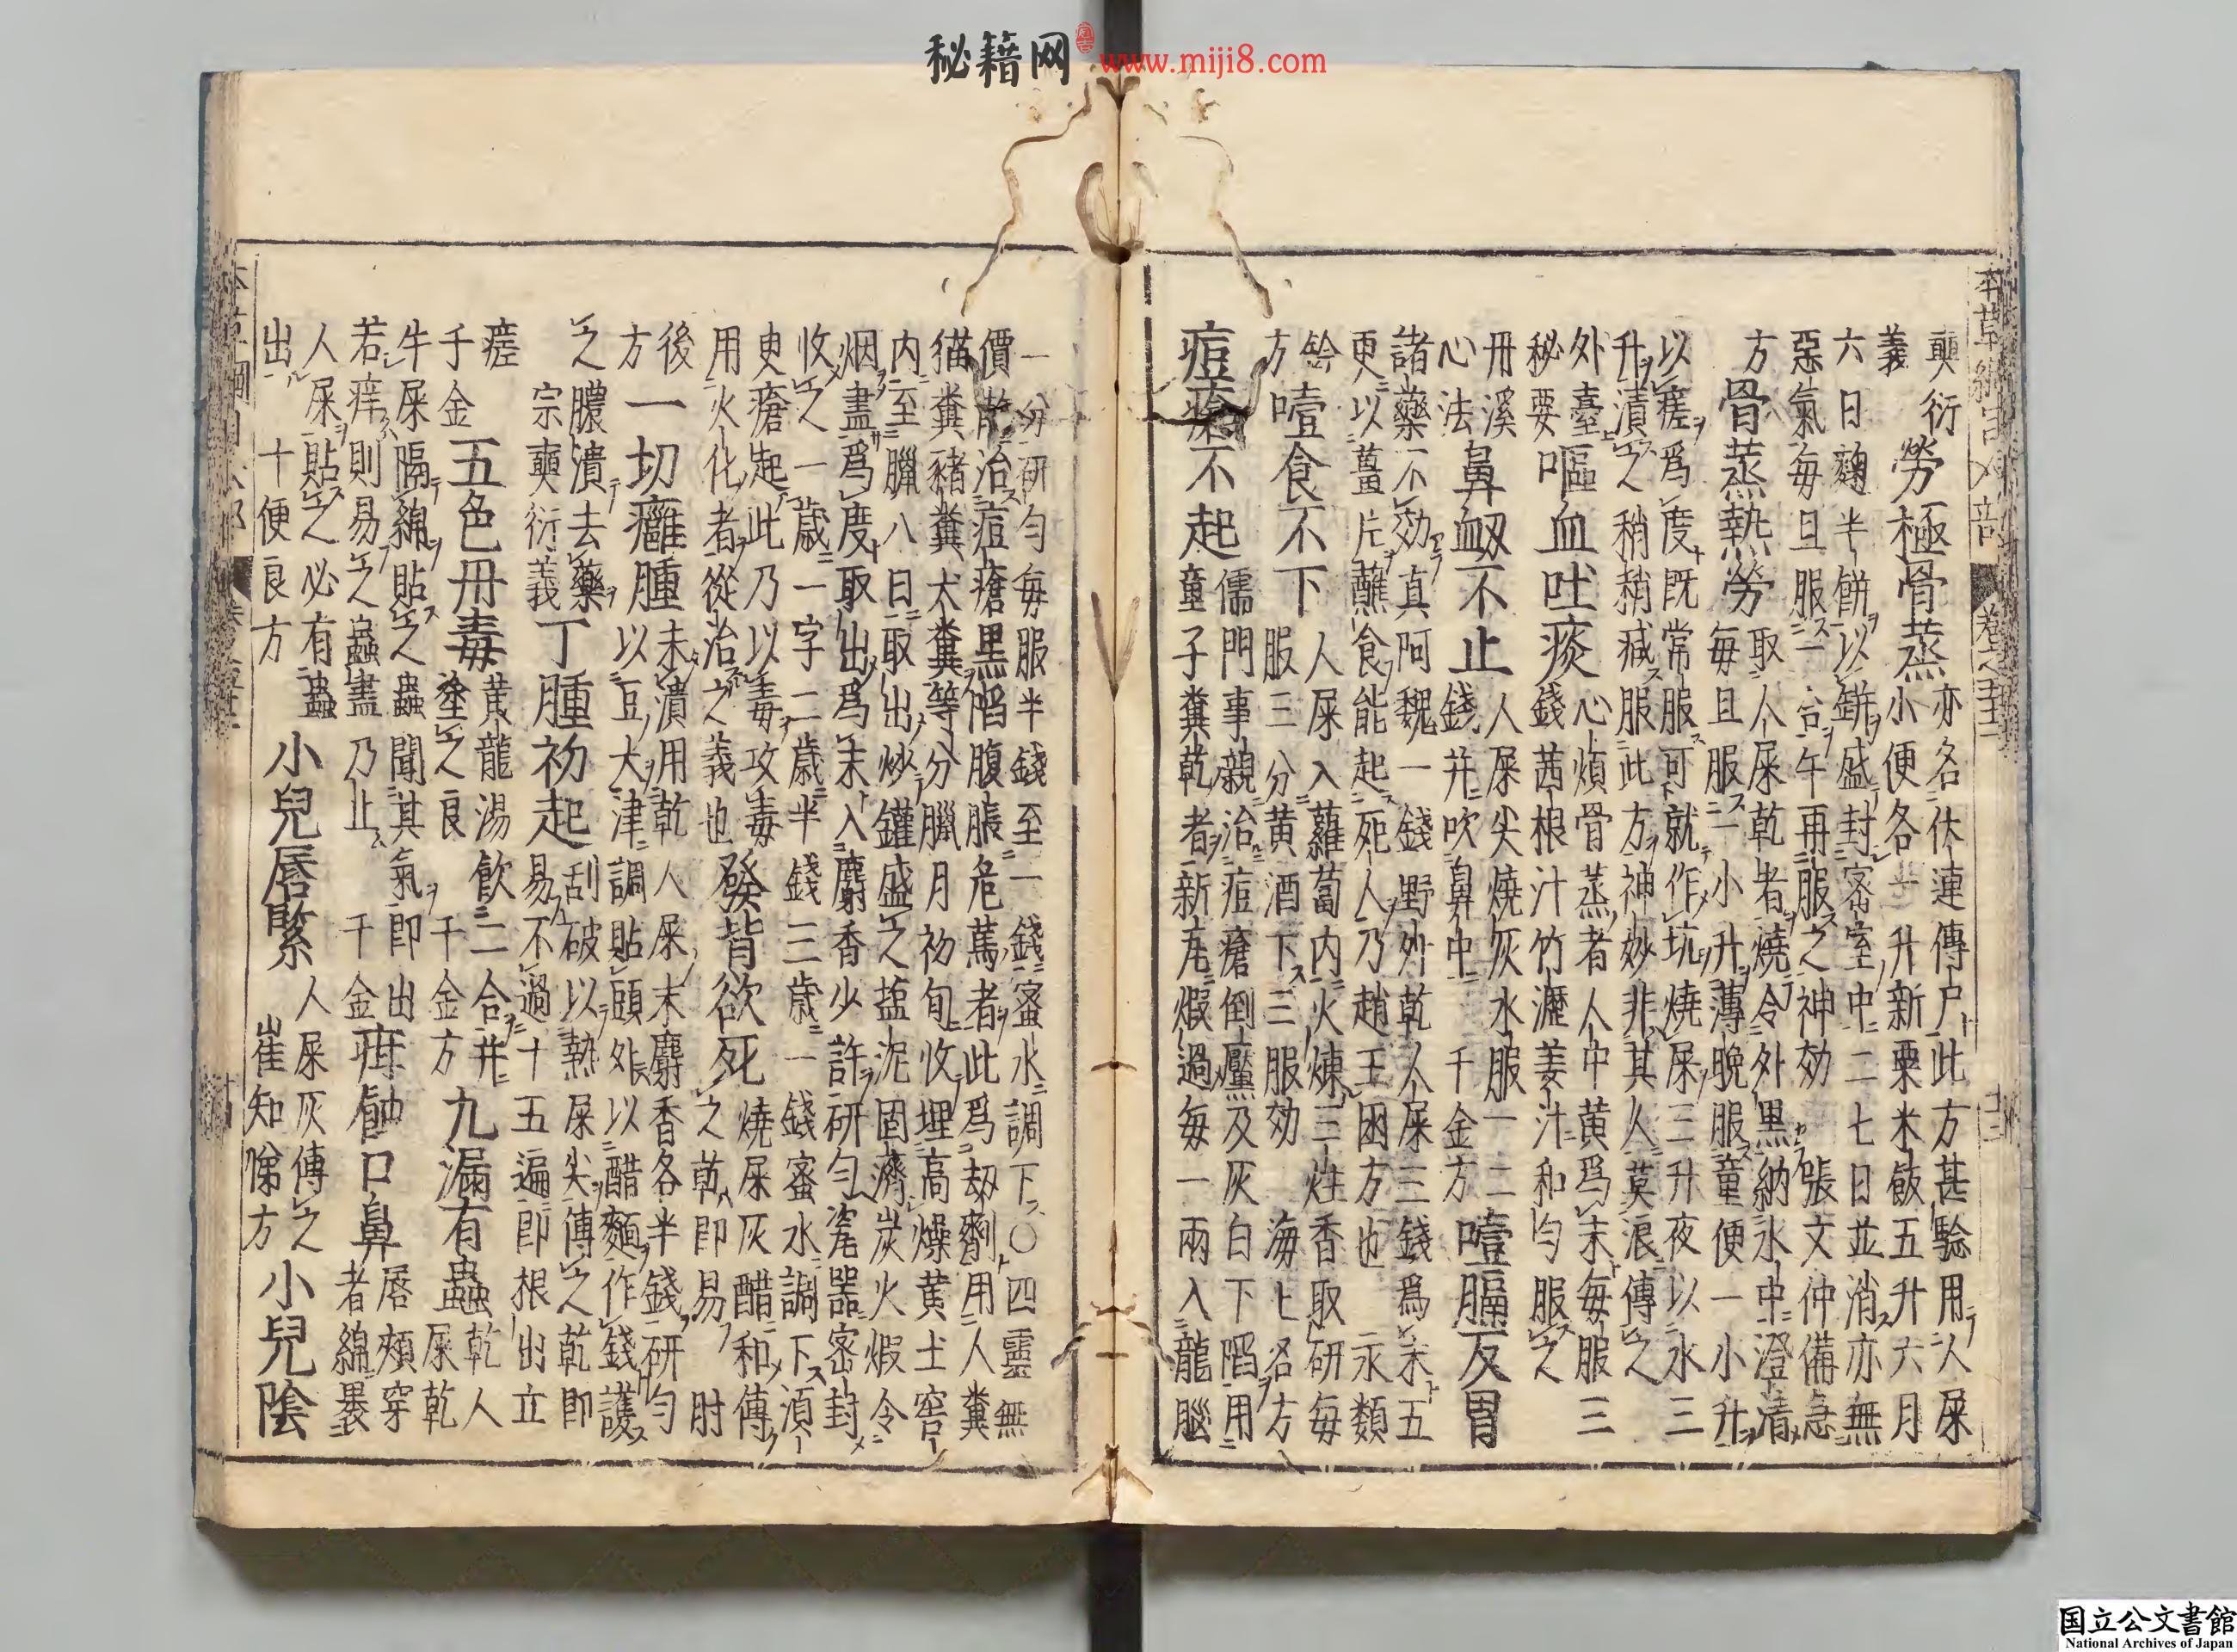 秘籍网 www.miji8.com
本草綱目人部 卷之五十二
奭衍
義
勞極骨蒸
亦名伏連傳尸此方甚驗用人屎
小便各一升新粟米飯五升六月
六日麹半餅以缾盛封密室中二七日並消亦無
惡氣每旦服一合午再服之神効 張文仲備急
方
骨蒸熱勞
取人屎乾者燒令外黑納水中澄清
每旦服一小升薄晩服童便一小升
以瘥爲度既常服可就作坑燒屎三升夜以水三
升漬之稍稍減服此方神妙非其人莫浪傳之
外臺
秘要
嘔血吐痰
心煩骨蒸者人中黃爲末每服三
錢茜根汁竹瀝姜汁和匀服之
丹溪
心法
鼻衂不止
人屎尖燒灰水服一二
錢并吹鼻中 千金方
噎膈反胃
諸藥不効真阿魏一錢野外乾人屎三錢爲末五
更以薑片蘸食能起死人乃趙王困方也 永類
鈐
方
噎食不下
人屎入蘿蔔内火煉三炷香取研每
服三分黄酒下三服効 海上名方
痘瘡不起
儒門事親治痘瘡倒靨及灰白下陷用
童子糞乾者新瓦煆過每一兩入龍腦
一分研匀每服半錢至一錢蜜水調下○四靈無
價散治痘瘡黑陷腹脹危篤者此爲劫劑用人糞
猫糞豬糞犬糞等分臘月初旬收埋高燥黄土窖
内至臘八日取出炒罐盛之塩泥固濟炭火煆令
烟盡爲度取出爲末入麝香少許研匀瓷器密封
收之一歳一字二歳半錢三歳一錢蜜水調下湏
㬰瘡起此乃以毒攻毒
用火化者從治之義也
發背欲死
燒屎灰醋和傅
之乾即易 肘
後
方
一切癰腫
未潰用乾人屎末麝香各半錢研匀
以豆大津調貼頭外以醋麵作錢護
之膿潰去藥
宗奭衍義
丁腫初起
刮破以熱屎尖傅之乾即
易不過十五遍即根出立
瘥
千金
五色丹毒
黄龍湯飲二合并
塗之良 千金方
九漏有蟲
乾人
屎乾
牛屎隔綿貼之蟲聞其氣即出
若痒則易之蟲盡乃止 千金
疳蝕口鼻
唇頰穿
者綿裹
人屎貼之必有蟲
出 十便良方
小兒唇緊
人屎灰傅之
崔知悌方
小兒陰
国立公文書館
National Archives of Japan